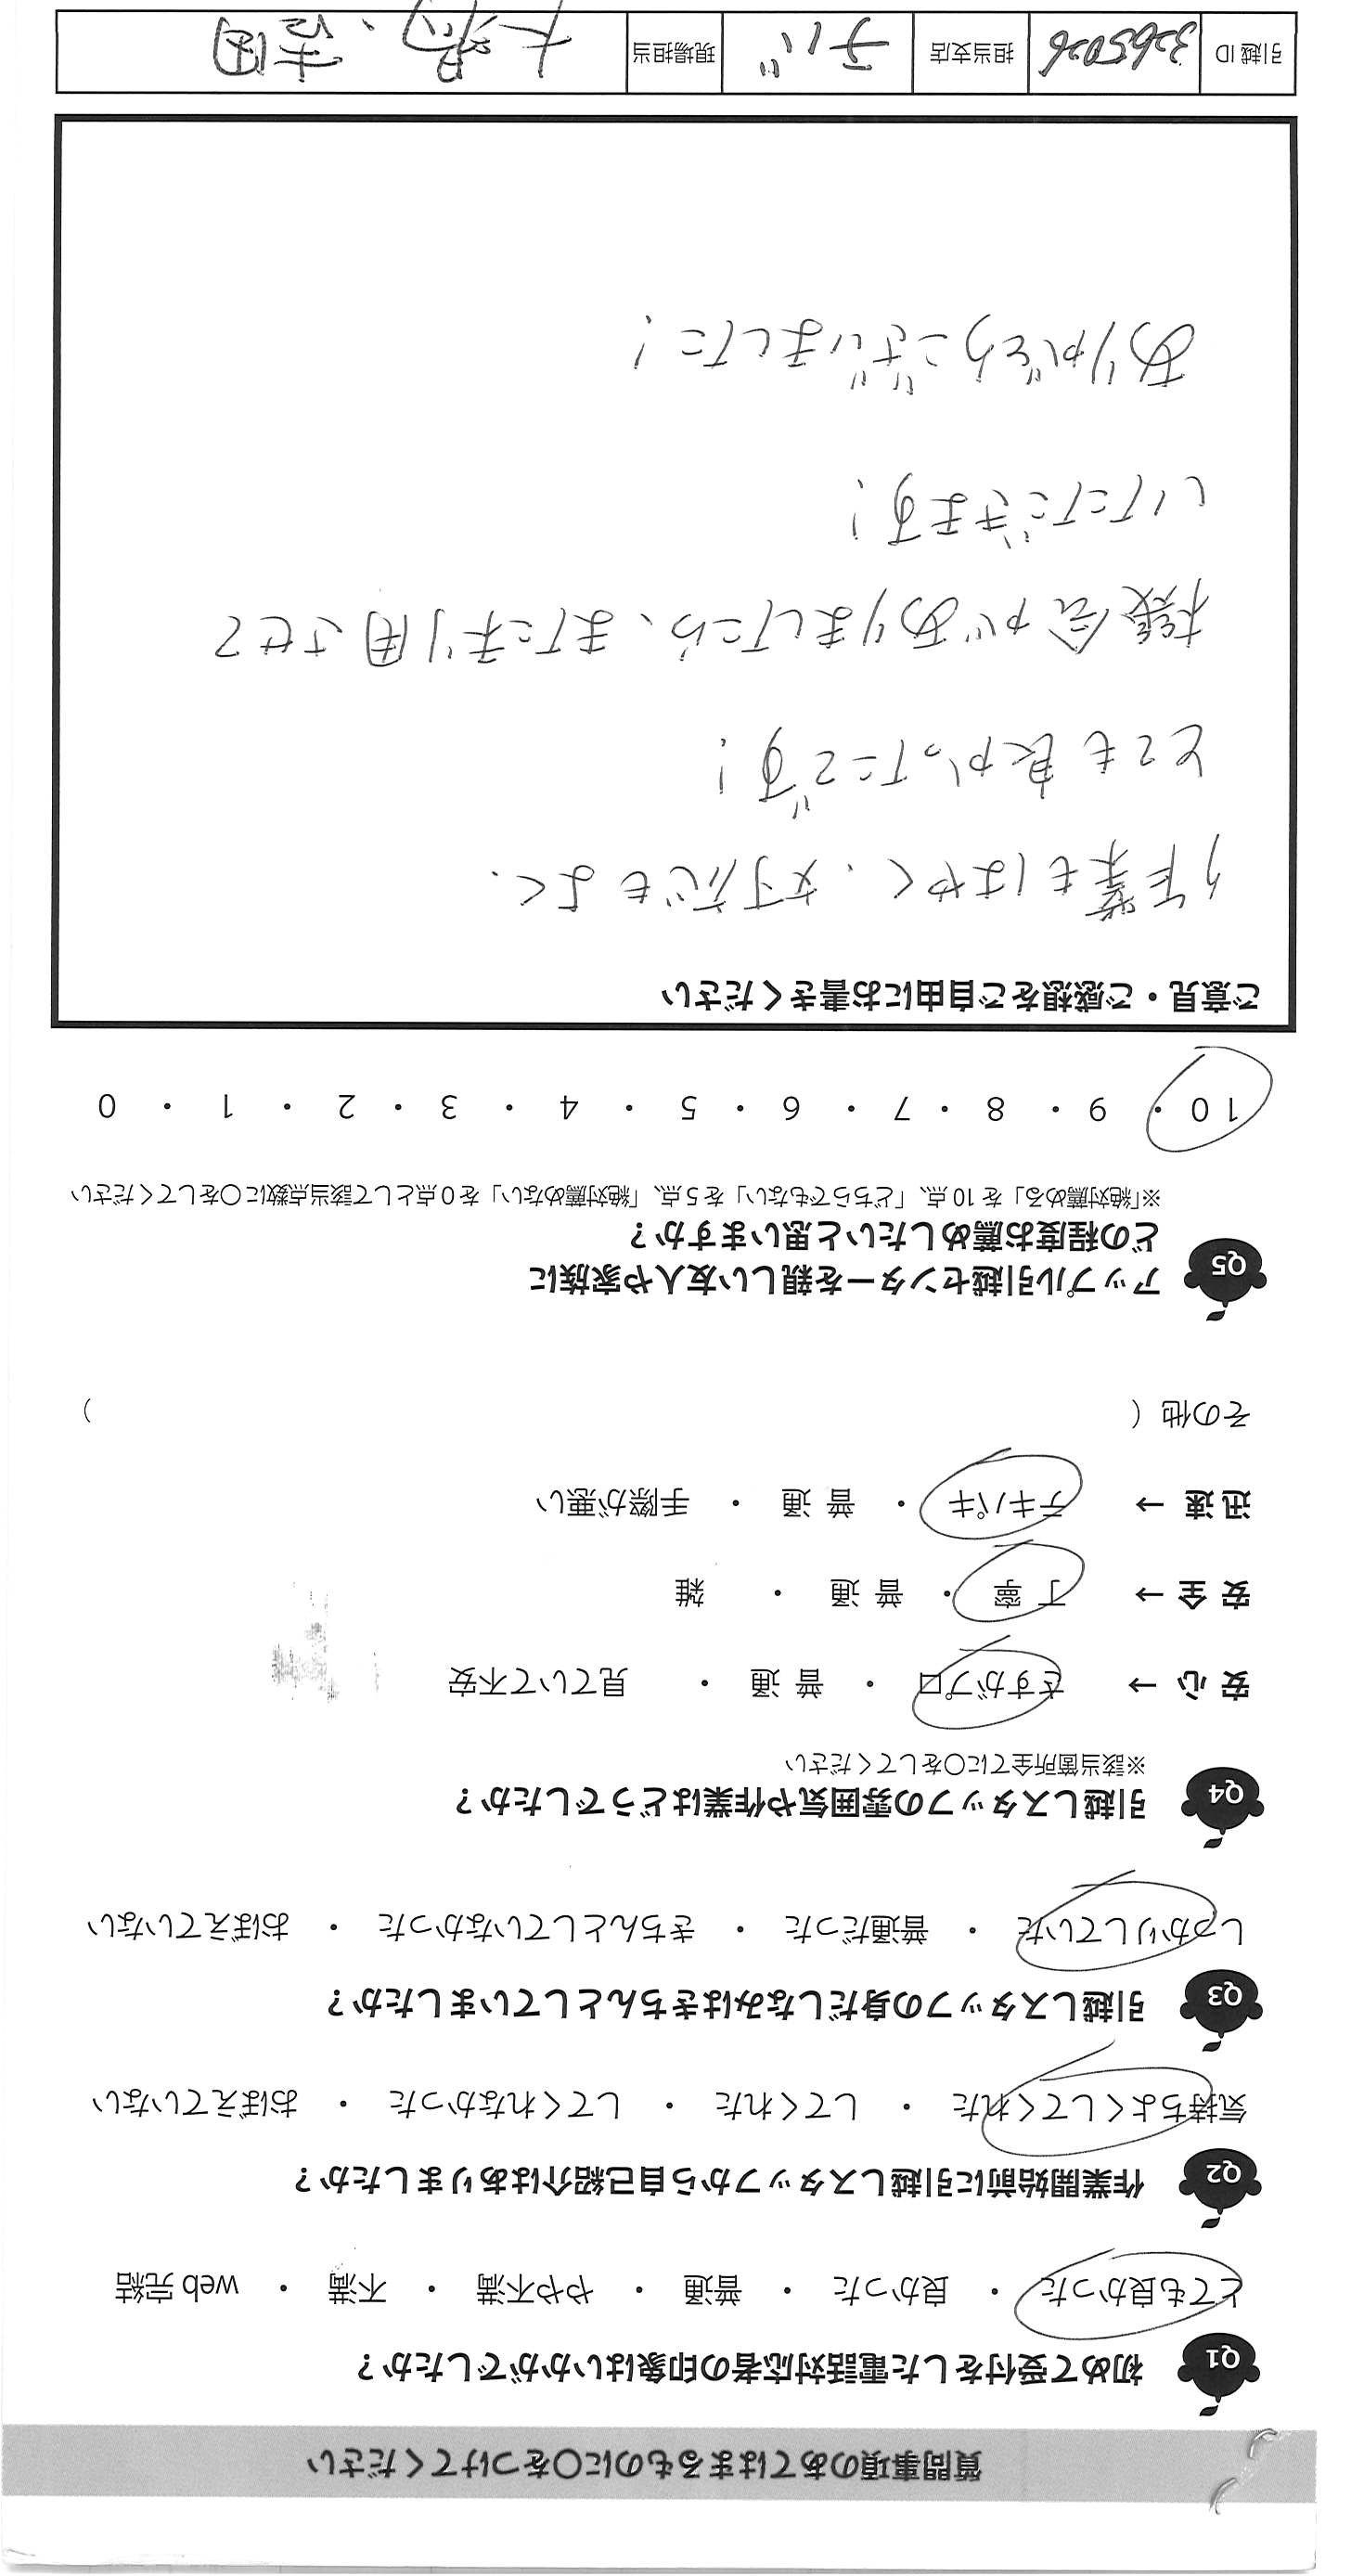 質問事項のあてはまるものに〇をつけてください
Q1 初めて受付をした電話対応者の印象はいかがでしたか？
とても良かった ・ 良かった ・ 普通 ・ やや不満 ・ 不満 ・ web 完結
Q2 作業開始前に引越しスタッフから自己紹介はありましたか？
気持ちよくしてくれた ・ してくれた ・ してくれなかった ・ おぼえていない
Q3 引越しスタッフの身だしなみはきちんとしていましたか？
しっかりしていた ・ 普通だった ・ きちんとしていなかった ・ おぼえていない
Q4 引越しスタッフの雰囲気や作業はどうでしたか？
※該当箇所全てに〇をしてください
安 心 → さすがプロ ・ 普 通 ・ 見ていて不安
安 全 → 丁 寧 ・ 普 通 ・ 雑
迅 速 → テキパキ ・ 普 通 ・ 手際が悪い
その他（ ）
Q5 アップル引越センターを親しい友人や家族に
どの程度お薦めしたいと思いますか？
※「絶対薦める」を 10 点、「どちらでもない」を 5 点、「絶対薦めない」を 0 点として該当点数に〇をしてください
10 ・ 9 ・ 8 ・ 7 ・ 6 ・ 5 ・ 4 ・ 3 ・ 2 ・ 1 ・ 0
ご意見・ご感想をご自由にお書きください
作業もはやく、対応もよく、
とても良かったです！
機会がありましたら、また利用させて
いただきます！
ありがとうございました！
引越 ID 3265026 担当支店 チバ 現場担当